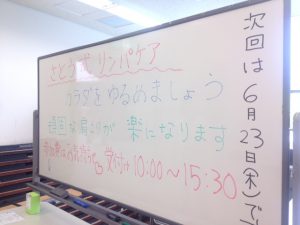 さとう式 リンパケア
カラダをゆるめましょう
頑固な肩こりが 楽になります
受付け 10:00〜15:30
次回は6月23日(木)で